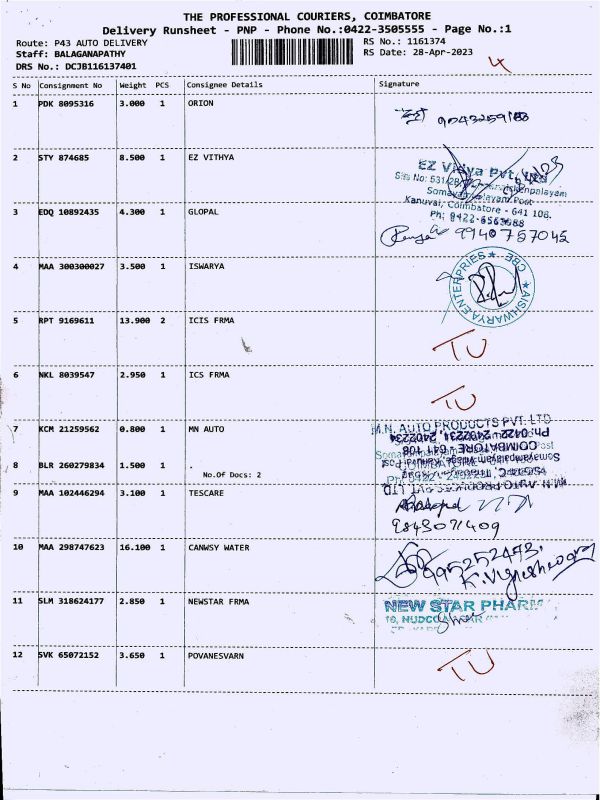 THE PROFESSIONAL COURIERS, COIMBATORE
Delivery Runsheet - PNP - Phone No.:0422-3505555 - Page No.:1
Route: P43 AUTO DELIVERY RS No.: 1161374
Staff: BALAGANAPATHY RS Date: 28-Apr-2023
DRS No.: DCJB116137401
4
S No Consignment No Weight PCS Consignee Details Signature
1 PDK 8095316 3.000 1 ORION
2 STY 874685 8.500 1 EZ VITHYA
EZ Vidya Pvt. Ltd
Kanuvai, Coimbatore - 641 108.
Ph: 0422-6563688
3 EDQ 10892435 4.300 1 GLOPAL
9940757045
4 MAA 300300027 3.500 1 ISWARYA
AISHWARYA ENTERPRIES ★ CBE ★
5 RPT 9169611 13.900 2 ICIS FRMA
TU
6 NKL 8039547 2.950 1 ICS FRMA
TU
7 KCM 21259562 0.800 1 MN AUTO
M.N. AUTO PRODUCTS PVT. LTD
Ph:0422-2402231, 2402234
COIMBATORE - 641 108
8 BLR 260279834 1.500 1 .
No.Of Docs: 2
M.N. AUTO PRODUCTS PVT LTD
9 MAA 102446294 3.100 1 TESCARE
9843071409
10 MAA 298747623 16.100 1 CANWSY WATER
K. Vigneshwaran
11 SLM 318624177 2.850 1 NEWSTAR FRMA
NEW STAR PHARM
12 SVK 65072152 3.650 1 POVANESVARN
TU